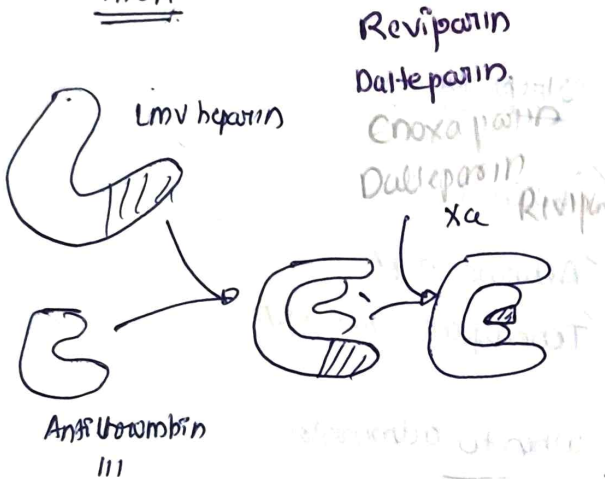 Reviparin
Dalteparin
Lmw heparin
Enoxaparin
Dalteparin
Xa
Antithrombin
III